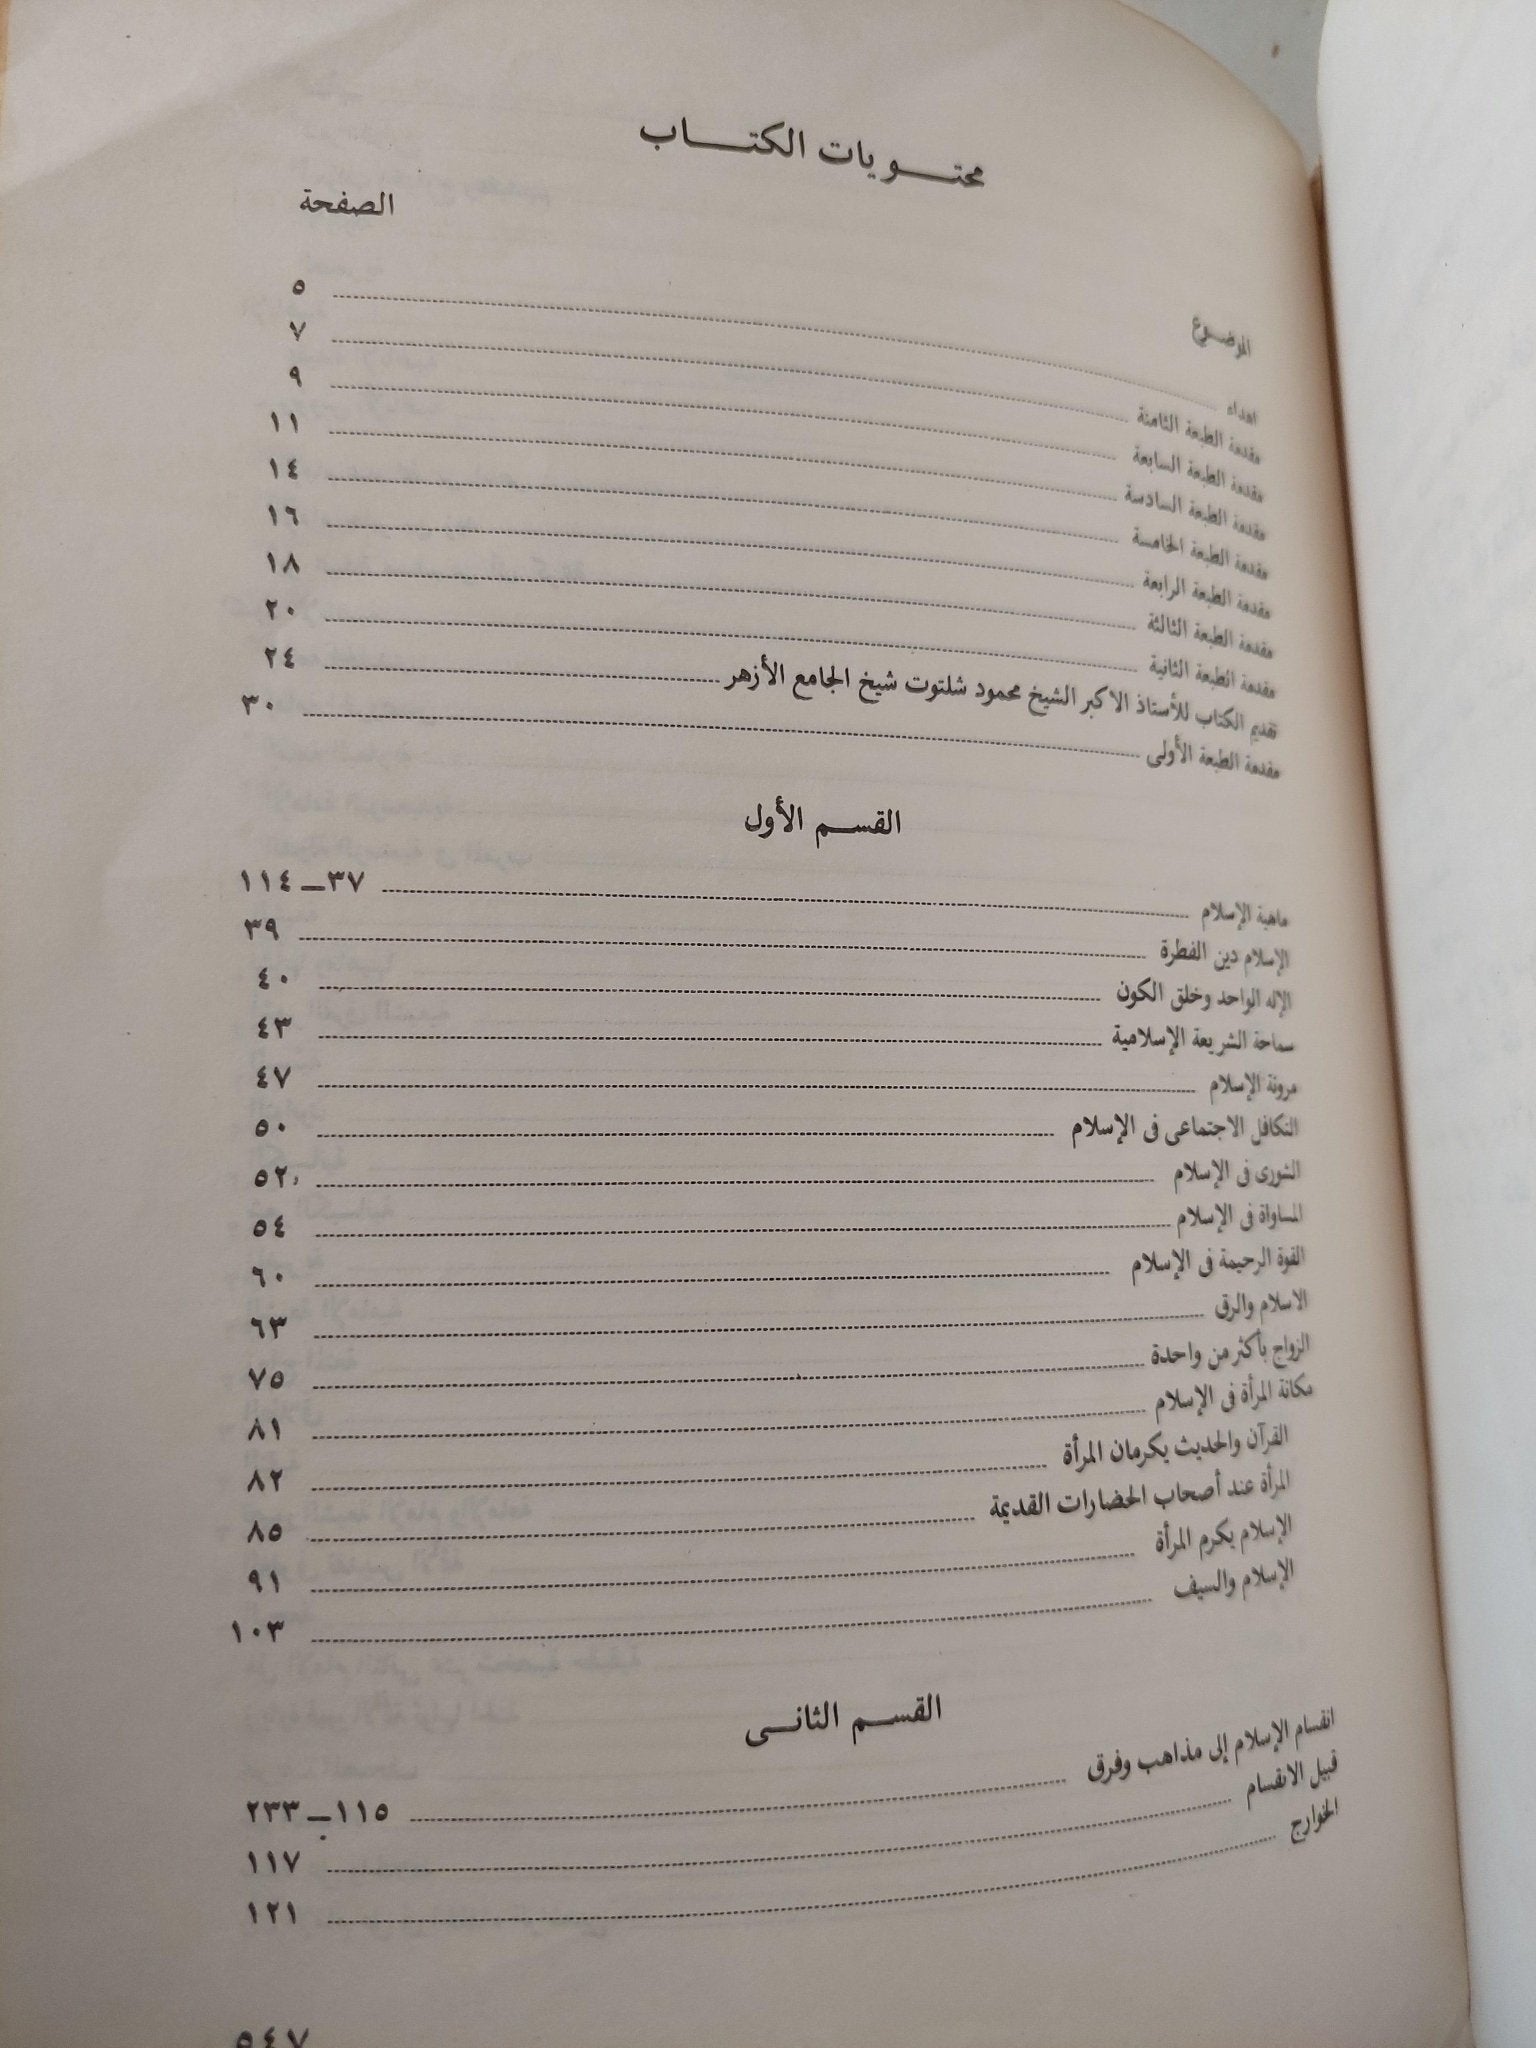 محتــويات الكتــاب
الموضـوع الصفحة
اهداء ٥
مقدمة الطبعة الثامنة ٧
مقدمة الطبعة السابعة ٩
مقدمة الطبعة السادسة ١١
مقدمة الطبعة الخامسة ١٤
مقدمة الطبعة الرابعة ١٦
مقدمة الطبعة الثالثة ١٨
مقدمة الطبعة الثانية ٢٠
تقديم الكتاب للأستاذ الاكبر الشيخ محمود شلتوت شيخ الجامع الأزهر ٢٤
مقدمة الطبعة الأولى ٣٠
القســم الأول
ماهية الإسلام ٣٧ــ١١٤
الإسلام دين الفطرة ٣٩
الإله الواحد وخلق الكون ٤٠
سماحة الشريعة الإسلامية ٤٣
مرونة الإسلام ٤٧
التكافل الاجتماعى فى الإسلام ٥٠
الشورى فى الإسلام ٥٢
المساواة فى الإسلام ٥٤
القوة الرحيمة فى الإسلام ٦٠
الاسلام والرق ٦٣
الزواج بأكثر من واحدة ٧٥
مكانة المرأة فى الإسلام ٨١
القرآن والحديث يكرمان المرأة ٨٢
المرأة عند أصحاب الحضارات القديمة ٨٥
الإسلام يكرم المرأة ٩١
الإسلام والسيف ١٠٣
القســم الثانــى
انقسام الإسلام إلى مذاهب وفرق ١١٥ــ٢٣٣
قبيل الانقسام ١١٧
الخوارج ١٢١
٥٤٧